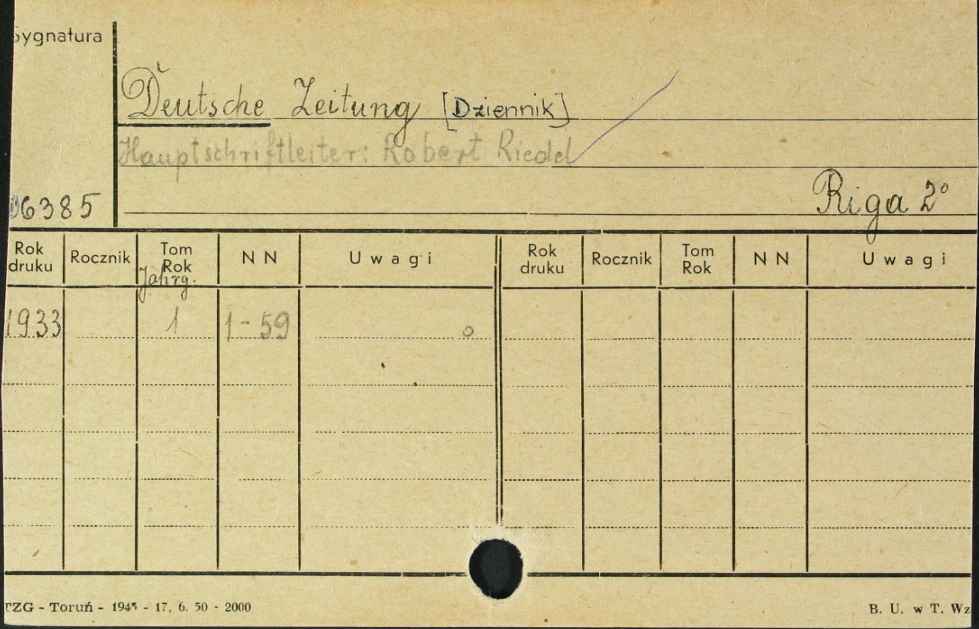 Sygnatura
Deutsche Zeitung [Dziennik]
Hauptschriftleiter: Robert Riedel
06385
Riga 2°
Rok druku Rocznik Tom Rok Jahrg. N N Uwagi Rok druku Rocznik Tom Rok N N Uwagi
1933 1 1-59 o
TZG - Toruń - 1945 - 17. 6. 50 - 2000
B. U. w T. Wz